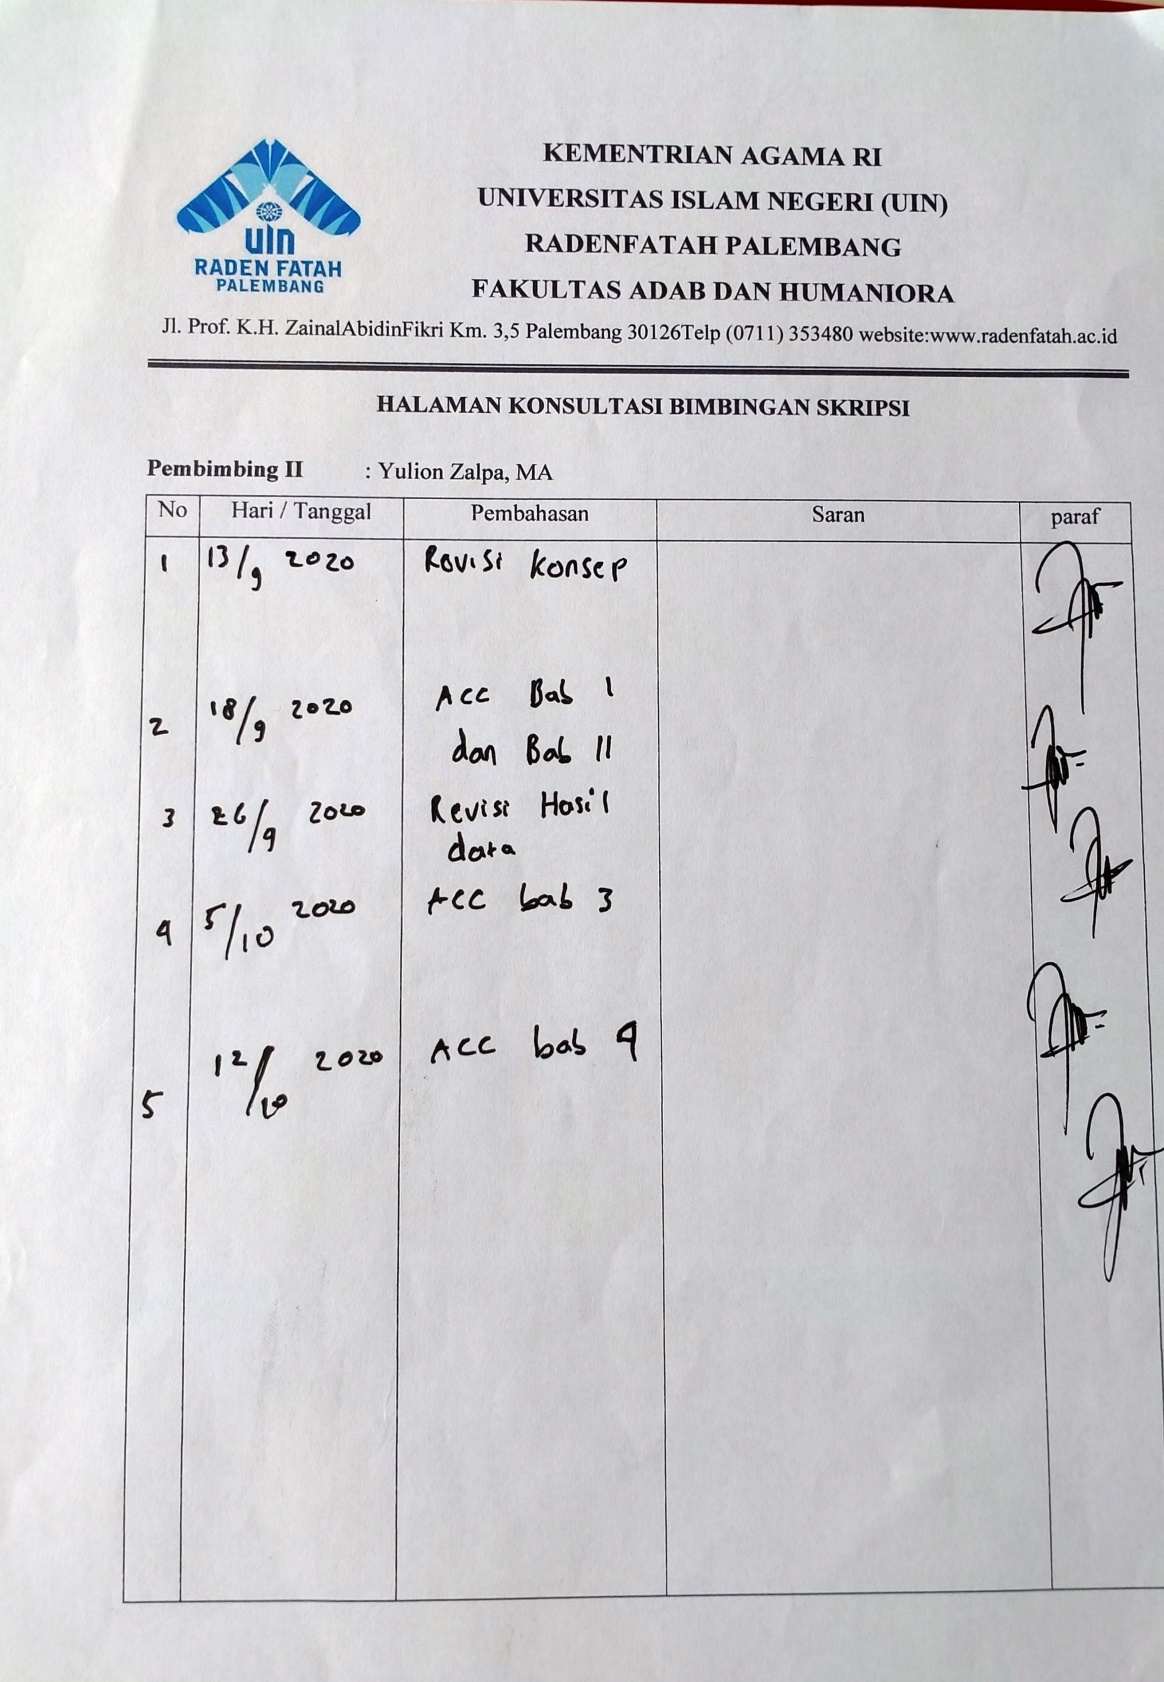 uin
RADEN FATAH
PALEMBANG
KEMENTRIAN AGAMA RI
UNIVERSITAS ISLAM NEGERI (UIN)
RADENFATAH PALEMBANG
FAKULTAS ADAB DAN HUMANIORA
Jl. Prof. K.H. ZainalAbidinFikri Km. 3,5 Palembang 30126Telp (0711) 353480 website:www.radenfatah.ac.id
HALAMAN KONSULTASI BIMBINGAN SKRIPSI
Pembimbing II : Yulion Zalpa, MA
No Hari / Tanggal Pembahasan Saran paraf
1 13/9 2020 Revisi Konsep
2 18/9 2020 ACC Bab I
dan Bab II
3 26/9 2020 Revisi Hasil
data
4 5/10 2020 ACC bab 3
5 12/10 2020 ACC bab 4